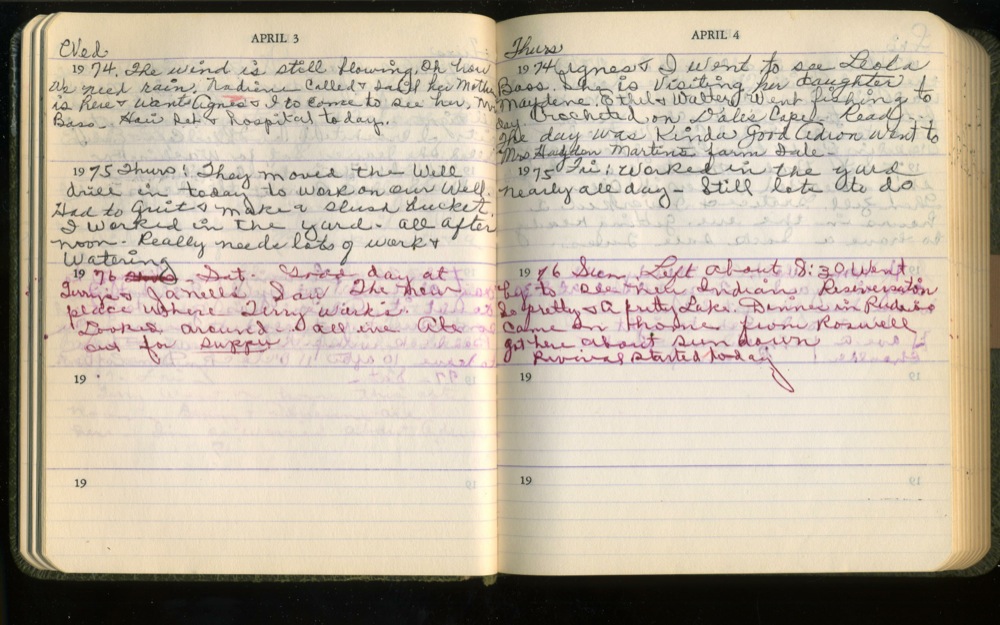 APRIL 3
Wed
1974. The wind is still blowing. Oh how
we need rain. Nadiene Called & said her Mother
is here & wants Agnes & I to come to see her, Mrs
Bass. Hair set & hospital today.
1975 Thurs: They moved the Well
drill in today to work on our Well.
Had to Quit & make a slush bucket.
I worked in the yard - all after
noon - Really needs lots of work &
Watering
1976 Sat. Good day at
Terrye & Janells Saw The New
place where Terry works.
Looked around all eve Ate
out for supper
19
19
APRIL 4
Thurs
1974 Agnes & I went to see Leola
Bass. She is Visiting her daughter
Maydene. Ethel & Walter went fishing to
day Crocheted on Dales Cape. Read
The day was Kinda Good Adron went to
Mrs Haydon Martins farm sale -
1975 Fri: Worked in the yard
nearly all day - Still lots to do
1976 Sun. Left about 8:30 Went
by to see the Indian Reservation
So pretty & A pretty Lake. Dinner in Ruidoso
Came on home from Roswell
got here about sun down
Revival started today
19
19